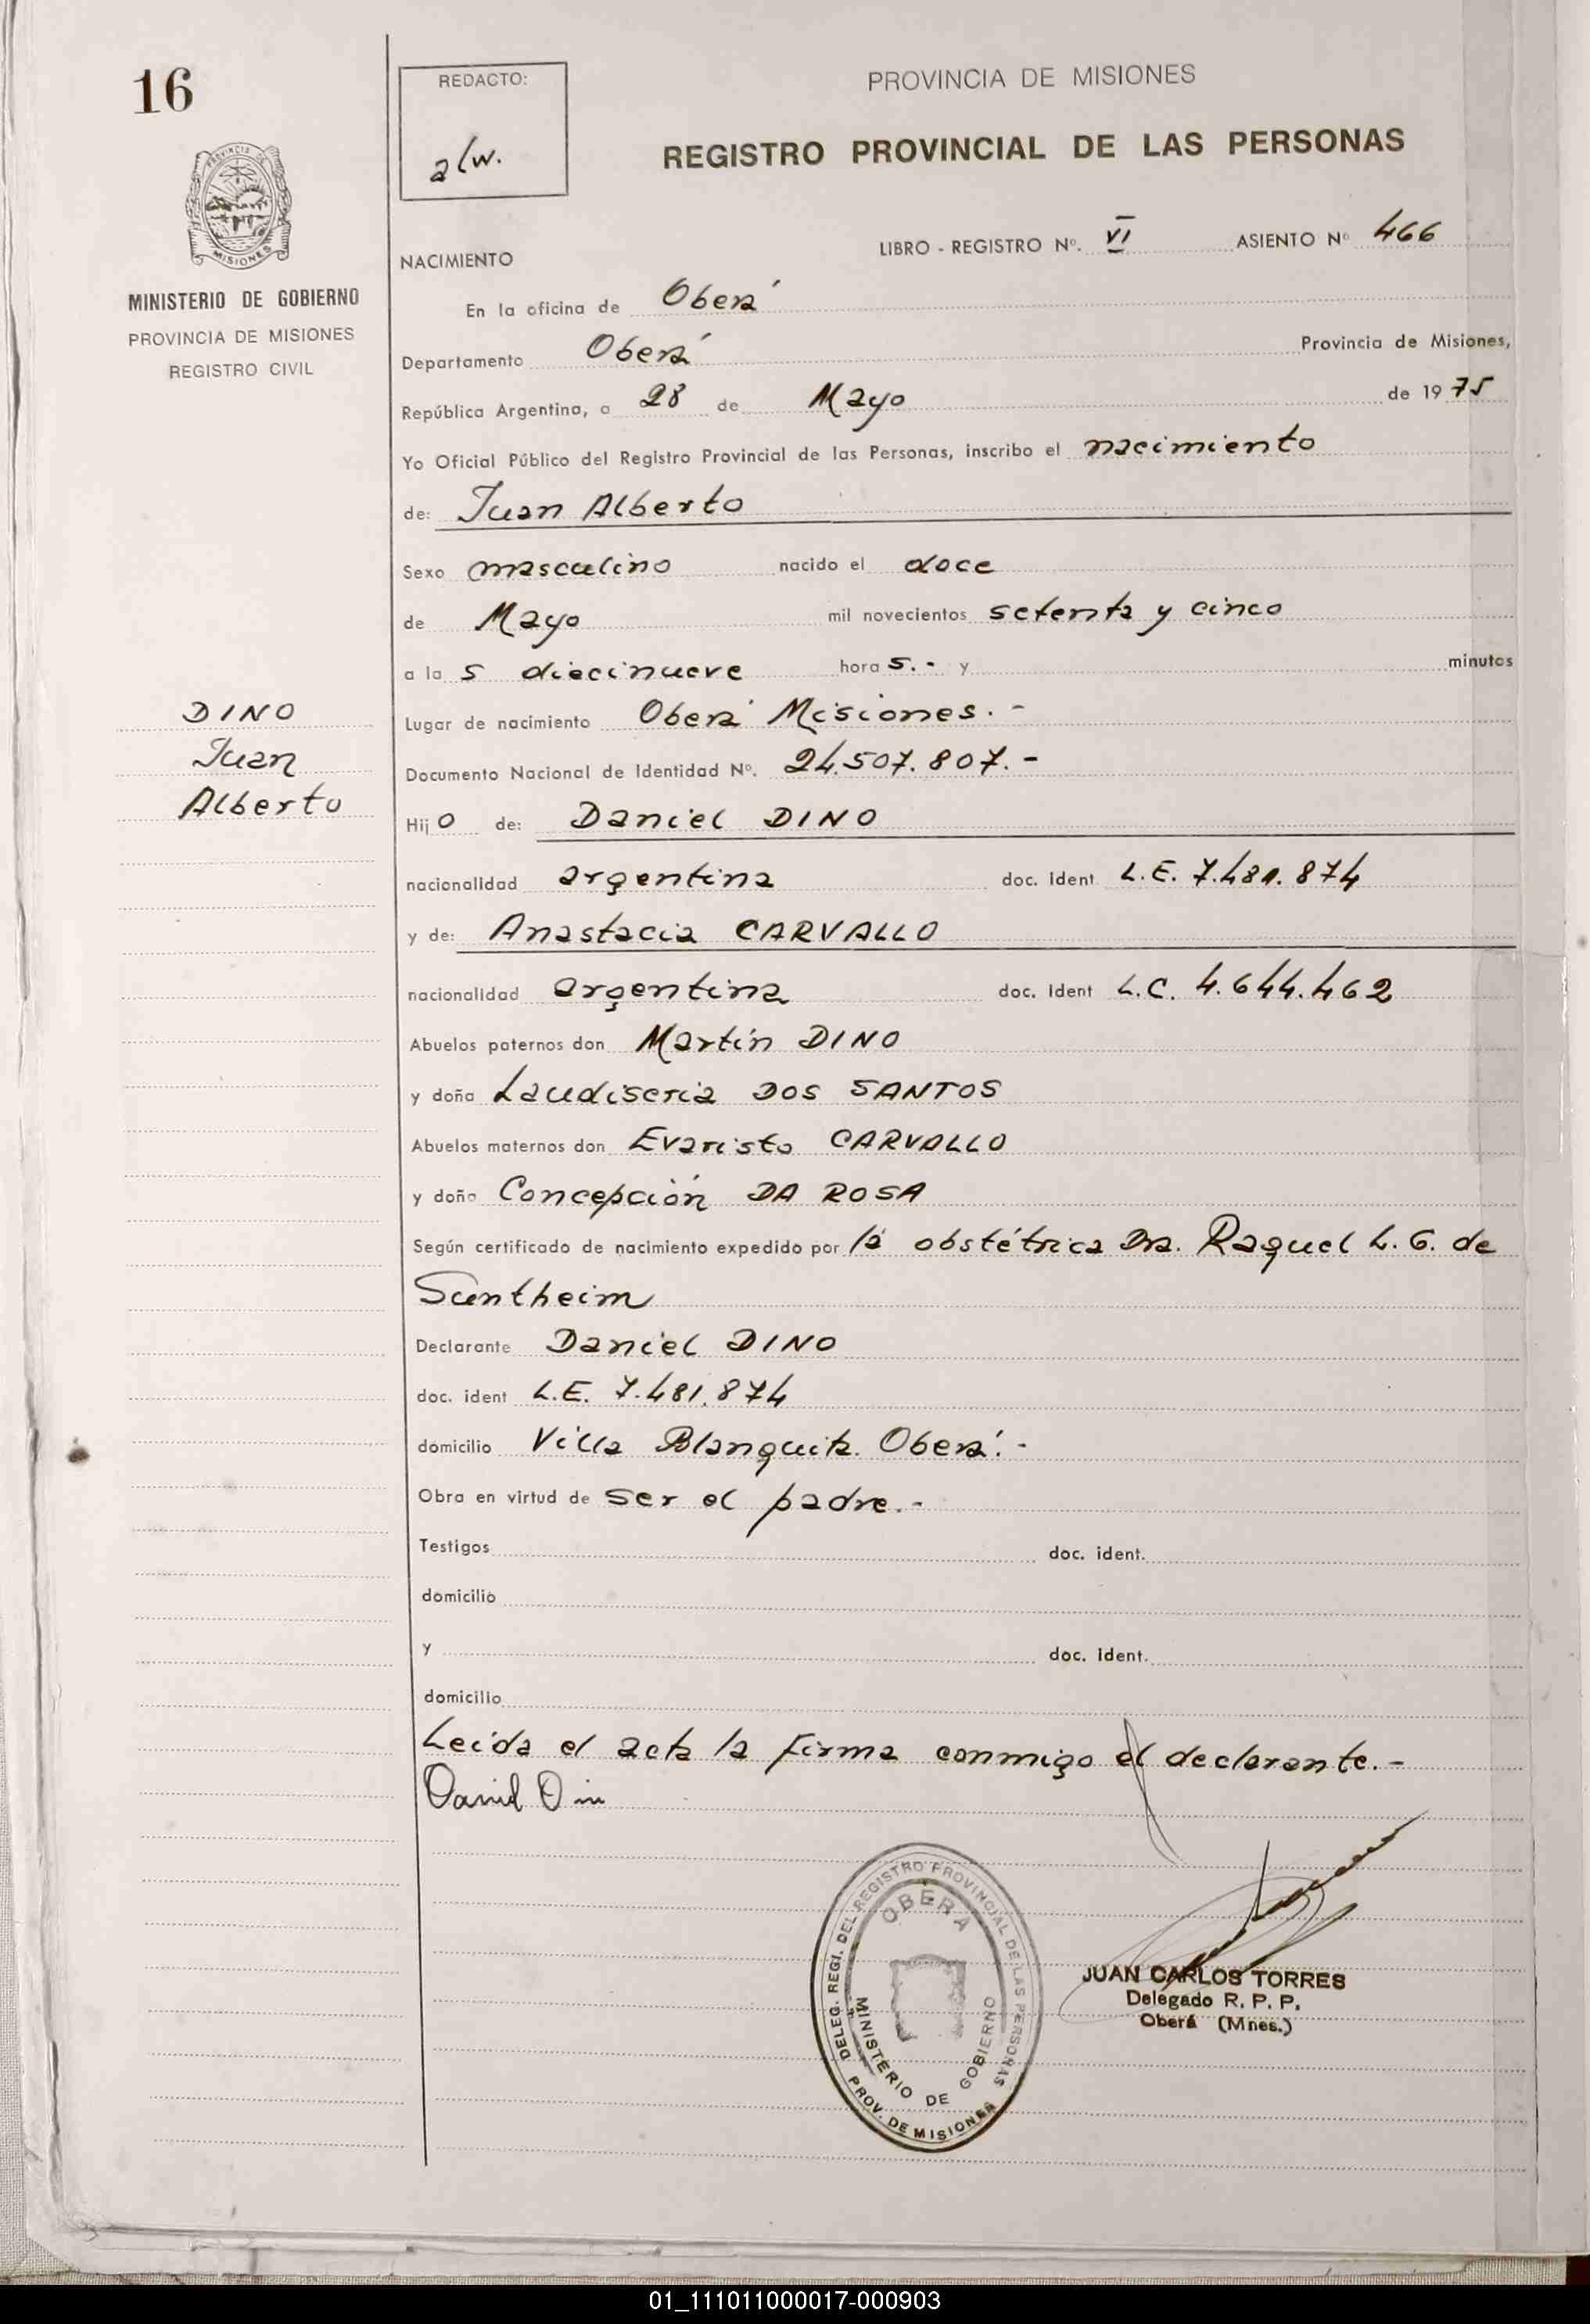 16
REDACTO:
a/w.
PROVINCIA DE MISIONES
REGISTRO PROVINCIAL DE LAS PERSONAS
PROVINCIA DE
MISIONES
MINISTERIO DE GOBIERNO
PROVINCIA DE MISIONES
REGISTRO CIVIL
NACIMIENTO
LIBRO - REGISTRO Nº. VI ASIENTO Nº 466
En la oficina de Oberá
Departamento Oberá Provincia de Misiones,
República Argentina, a 28 de Mayo de 1975
Yo Oficial Público del Registro Provincial de las Personas, inscribo el nacimiento
de: Juan Alberto
Sexo masculino nacido el doce
de Mayo mil novecientos setenta y cinco
a la s diecinueve hora s.- y minutos
DINO
Juan
Alberto
Lugar de nacimiento Oberá Misiones.-
Documento Nacional de Identidad Nº. 24.507.807.-
Hijo de: Daniel DINO
nacionalidad argentina doc. ident L.E. 7.481.874
y de: Anastacia CARVALLO
nacionalidad argentina doc. ident L.C. 4.644.462
Abuelos paternos don Martín DINO
y doña Laudiseria DOS SANTOS
Abuelos maternos don Evaristo CARVALLO
y doña Concepción DA ROSA
Según certificado de nacimiento expedido por la obstétrica Dra. Raquel L. G. de
Suntheim
Declarante Daniel DINO
doc. ident L.E. 7.481.874
domicilio Villa Blanquita Oberá.-
Obra en virtud de ser el padre.-
Testigos doc. ident.
domicilio
y doc. ident.
domicilio
Leída el acta la firma conmigo el declarante.-
Daniel Din
DELEG. REGI. DEL REGISTRO PROVINCIAL DE LAS PERSONAS
OBERA
MINISTERIO DE GOBIERNO
PROV. DE MISIONES
JUAN CARLOS TORRES
Delegado R. P. P.
Oberá (Mnes.)
01_111011000017-000903